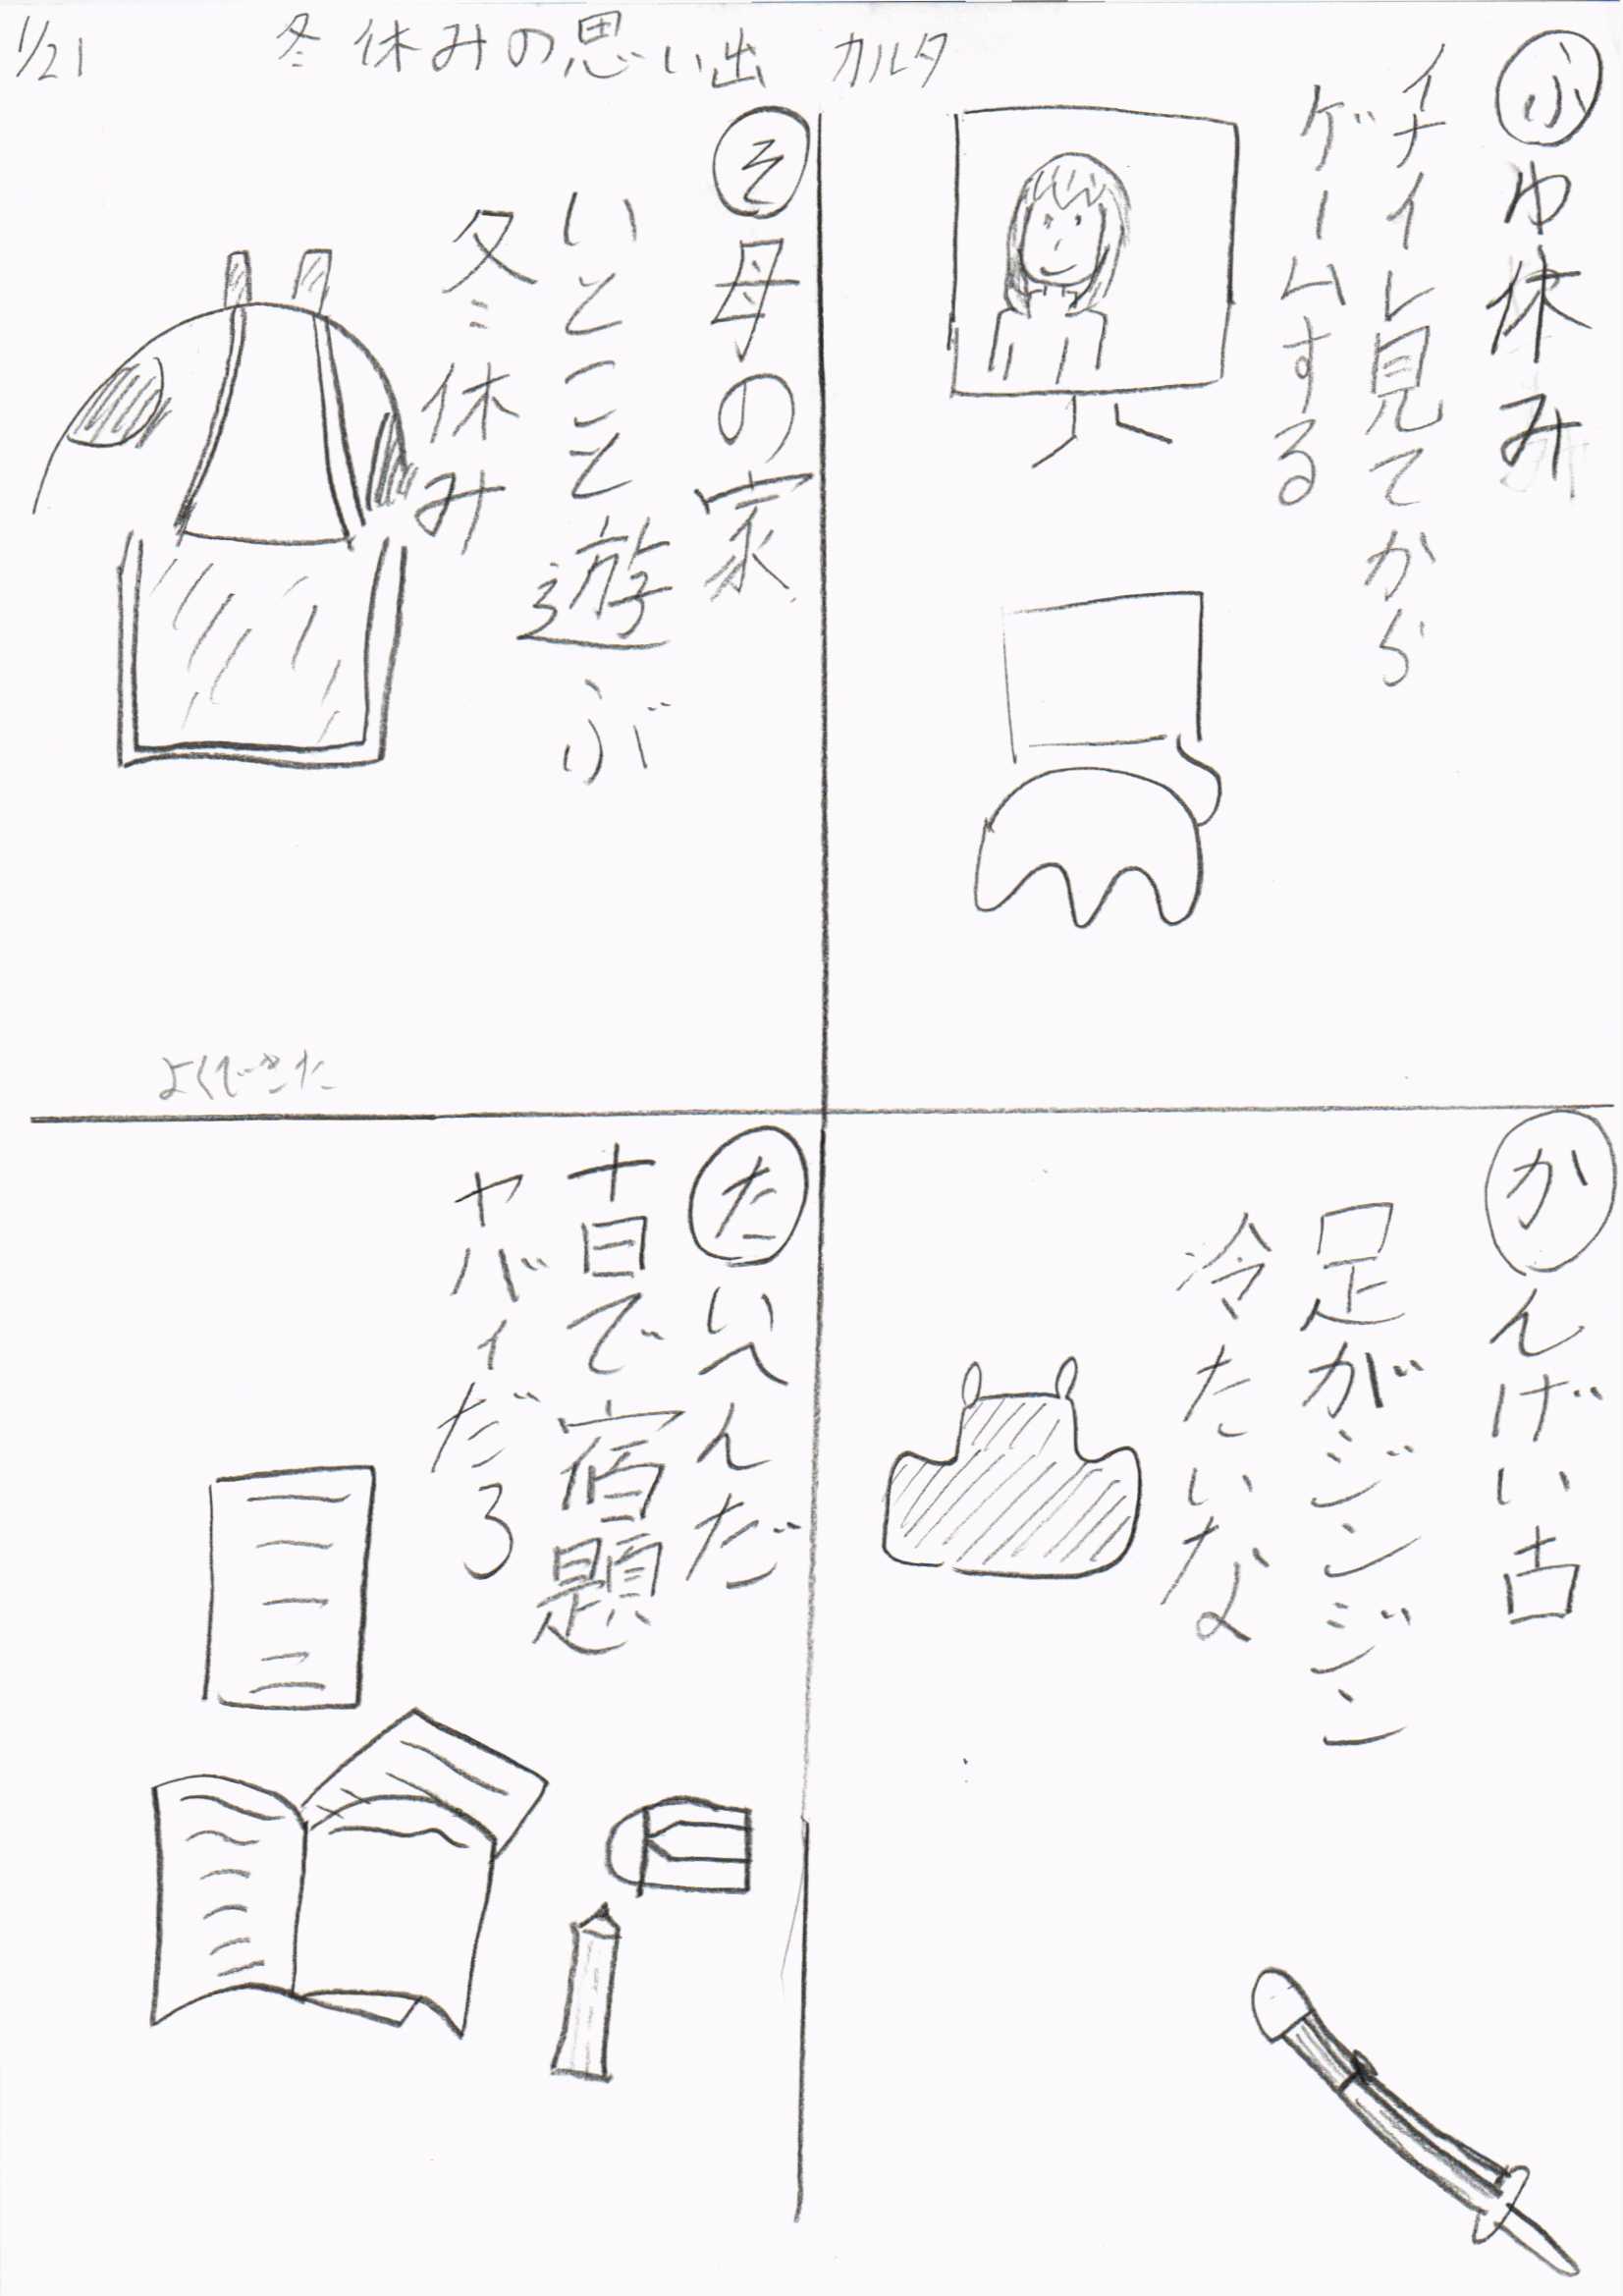 1/21 冬休みの思い出 カルタ
ふゆ休み
イナイレ見てから
ゲームする
そ母の家
いとこと遊ぶ
冬休み
よくできた
かんげい古
足がジンジン
冷たいな
たいへんだ
十日で宿題
ヤバィだろ